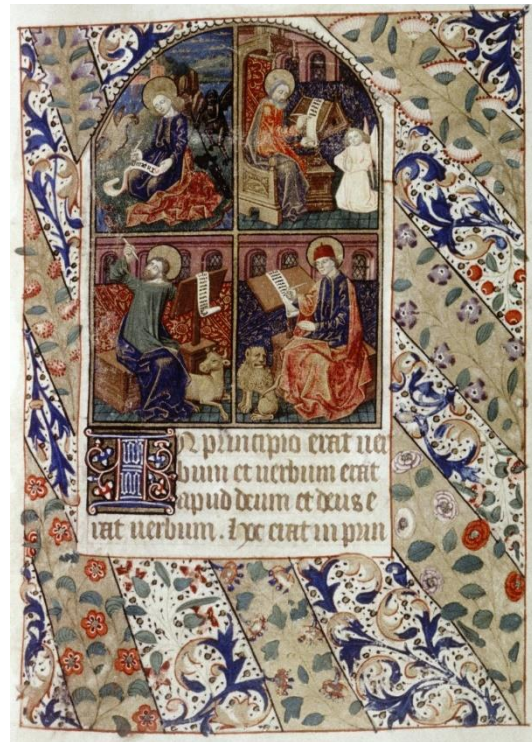 In principio erat uer
bum et uerbum erat
apud deum et deus e
rat uerbum. hoc erat in prin